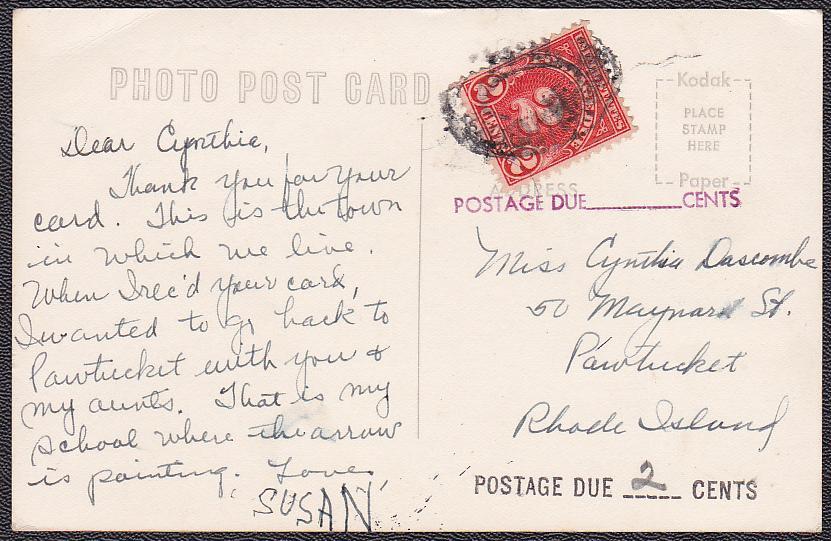 PHOTO POST CARD
Dear Cynthia,
Thank you for your
card. This is the town
in which we live.
When I rec'd your card,
I wanted to go back to
Pawtucket with you &
my aunts. That is my
school where the arrow
is pointing. Love,
SUSAN
2
2
2
CENTS
UNITED STATES
Kodak
PLACE
STAMP
HERE
Paper
ADDRESS
POSTAGE DUE________CENTS
Miss Cynthia Dascombe
50 Maynard St.
Pawtucket
Rhode Island
POSTAGE DUE 2 CENTS